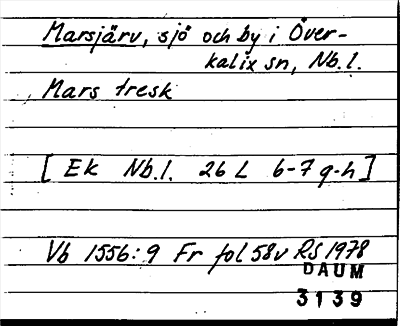 Marsjärv, sjö och by i Över-
kalix sn, Nb.l.
Mars tresk
[ Ek Nb.l. 26 L 6-7 g-h ]
Vb 1556:9 Fr fol 58v RS 1978
DAUM
3139